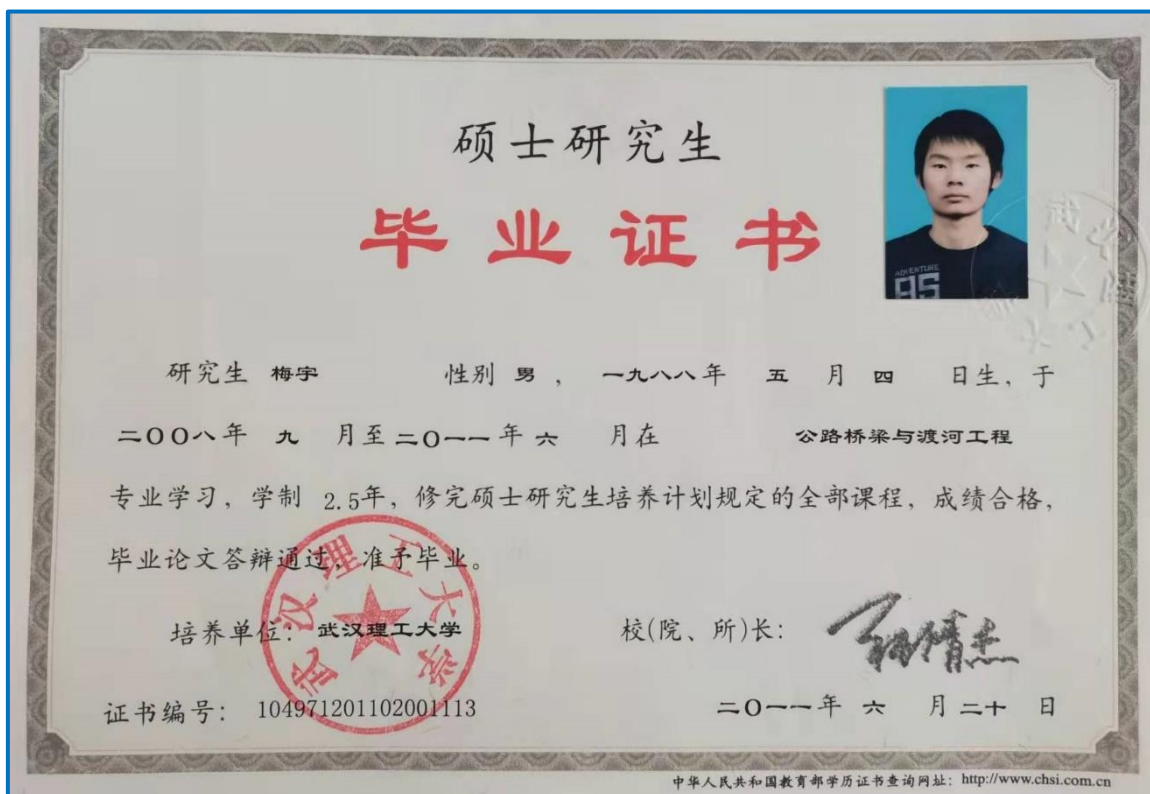 硕士研究生
毕业证书
ADVENTURE
85
研究生 梅宇 性别 男 , 一九八八年 五 月 四 日生, 于
二〇〇八年 九 月至 二〇一一年 六 月在 公路桥梁与渡河工程
专业学习, 学制 2.5年, 修完硕士研究生培养计划规定的全部课程, 成绩合格,
毕业论文答辩通过, 准予毕业。
武汉理工大学
培养单位: 武汉理工大学 校(院、所)长:
证书编号: 104971201102001113 二〇一一年 六 月 二十 日
中华人民共和国教育部学历证书查询网址: http://www.chsi.com.cn